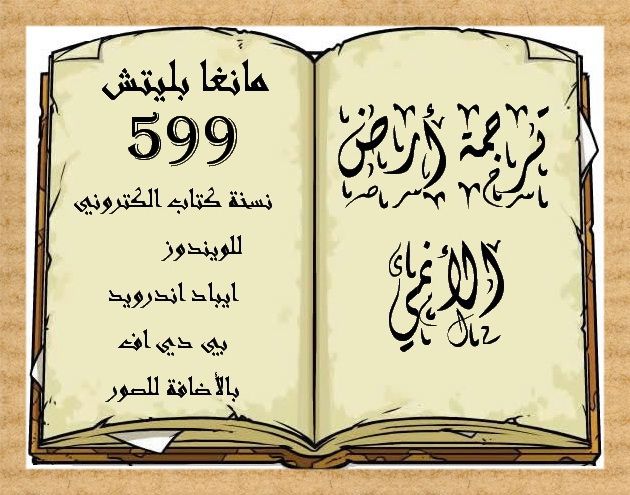 ترجمة أرض
الأنمي
مانغا بليتش
599
نسخة كتاب الكتروني
للويندوز
ايباد اندرويد
بي دي اف
بالأضافة للصور